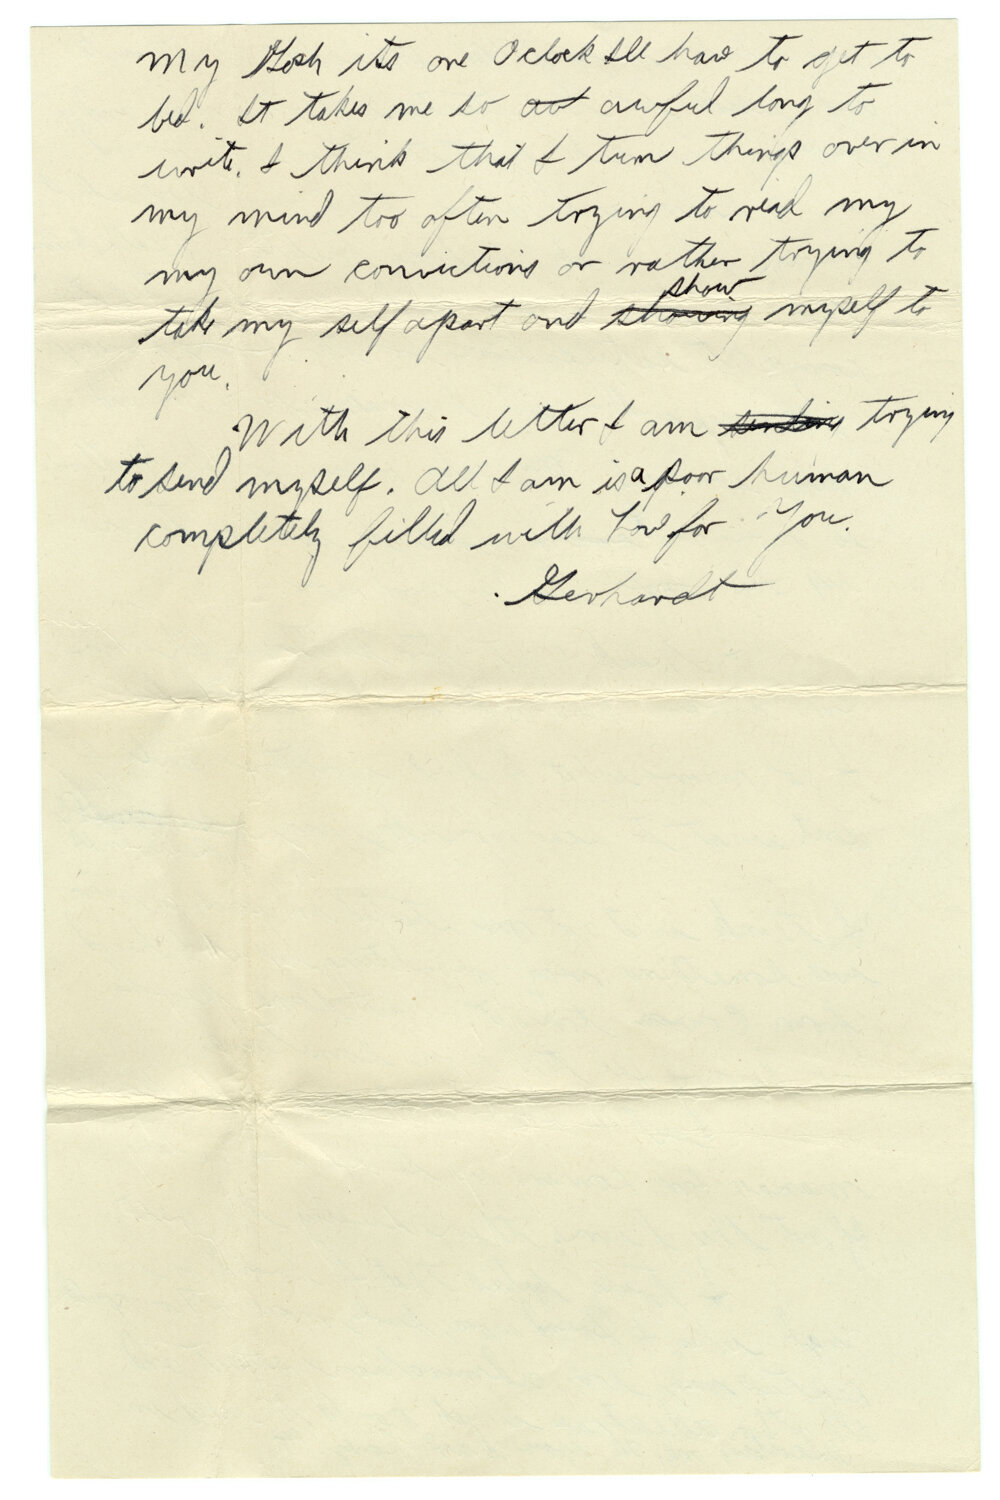 My Gosh its one Oclock Ill have to get to
bed. It takes me so aw awful long to
write. I think that I turn things over in
my mind too often trying to read my
my own convictions or rather trying to
take my self apart and showing show myself to
you.
With this letter I am sending trying
to send myself. All I am is a poor human
completely filled with Love for You.
Gerhardt